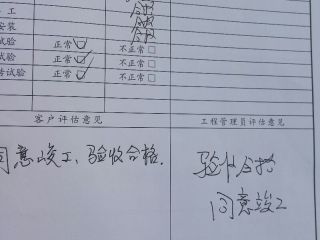 工 合格
安装 合格
试验 正常☑ 不正常□
试验 正常☑ 不正常□
转试验 正常☑ 不正常□
客户评估意见 工程管理员评估意见
同意峻工、验收合格.
验收合格
同意竣工